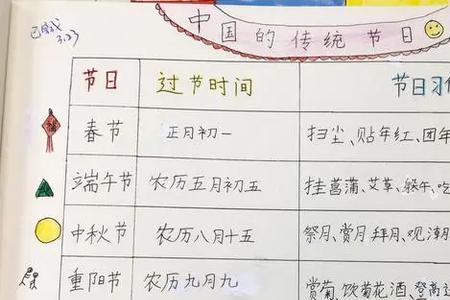 中国的传统节日
3.23
节日 过节时间 节日习
春节 正月初一 扫尘、贴年红、团年
端午节 农历五月初五 挂菖蒲、艾草、躲午、吃
中秋节 农历八月十五 祭月、赏月、拜月、观潮
重阳节 农历九月九 赏菊、饮菊花酒、登高